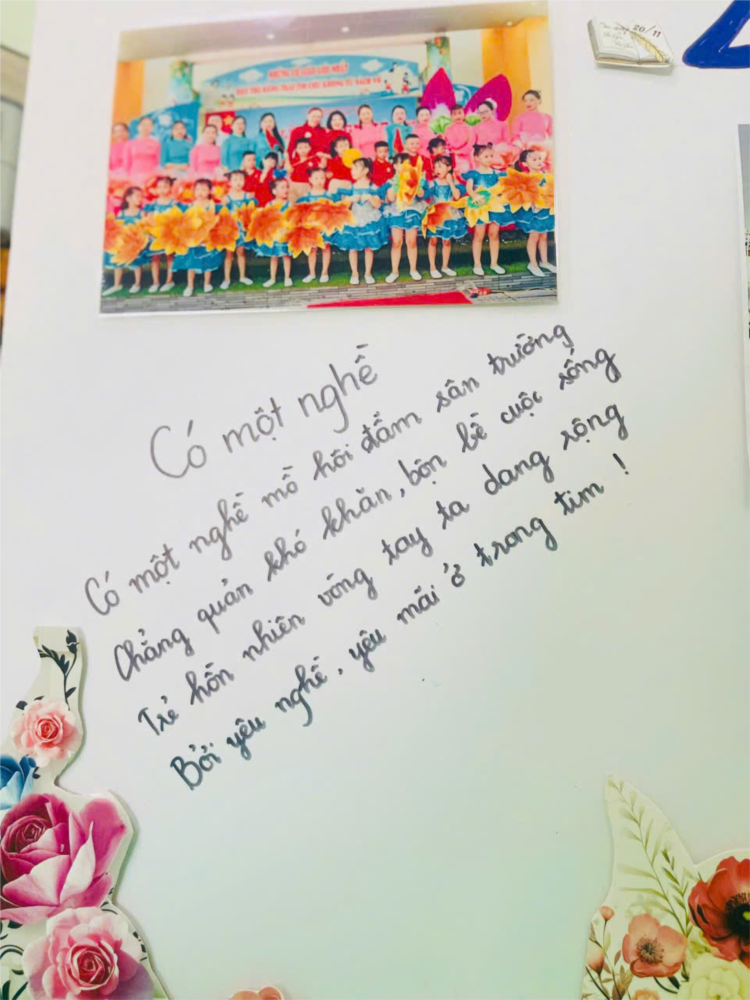 20/11
Có một nghề
Có một nghề mồ hôi đẫm sân trường
Chẳng quản khó khăn, bộn bề cuộc sống
Trẻ hồn nhiên vòng tay ta dang rộng
Bởi yêu nghề, yêu mãi ở trong tim !